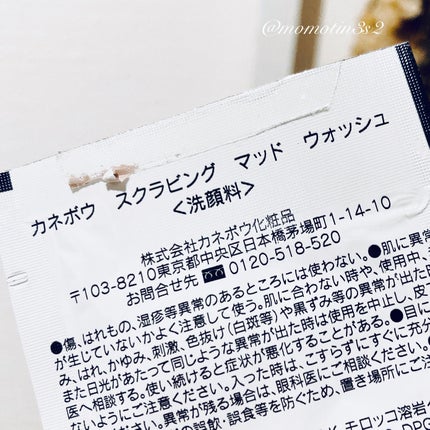 @momotin3s2
カネボウ スクラビング マッド ウォッシュ
<洗顔料>
株式会社カネボウ化粧品
〒103-8210東京都中央区日本橋茅場町1-14-10
お問合せ先 0120-518-520
●傷、はれもの、湿疹等異常のあるところには使わない。●肌に異常
が生じていないかよく注意して使う。肌に合わない時や、使用中、
み、はれ、かゆみ、刺激、色抜け(白斑等)や黒ずみ等の異常が出た時
また日光があたって同じような異常が出た時は使用を中止し、皮
医へ相談する。使い続けると症状が悪化することがある。●目に
ないようにご注意ください。入った時は、こすらずにすぐに充
ください。異常が残る場合は、眼科医にご相談ください。
の誤飲・誤食等を防ぐため、置き場所にご注
モロッコ溶岩
DPG